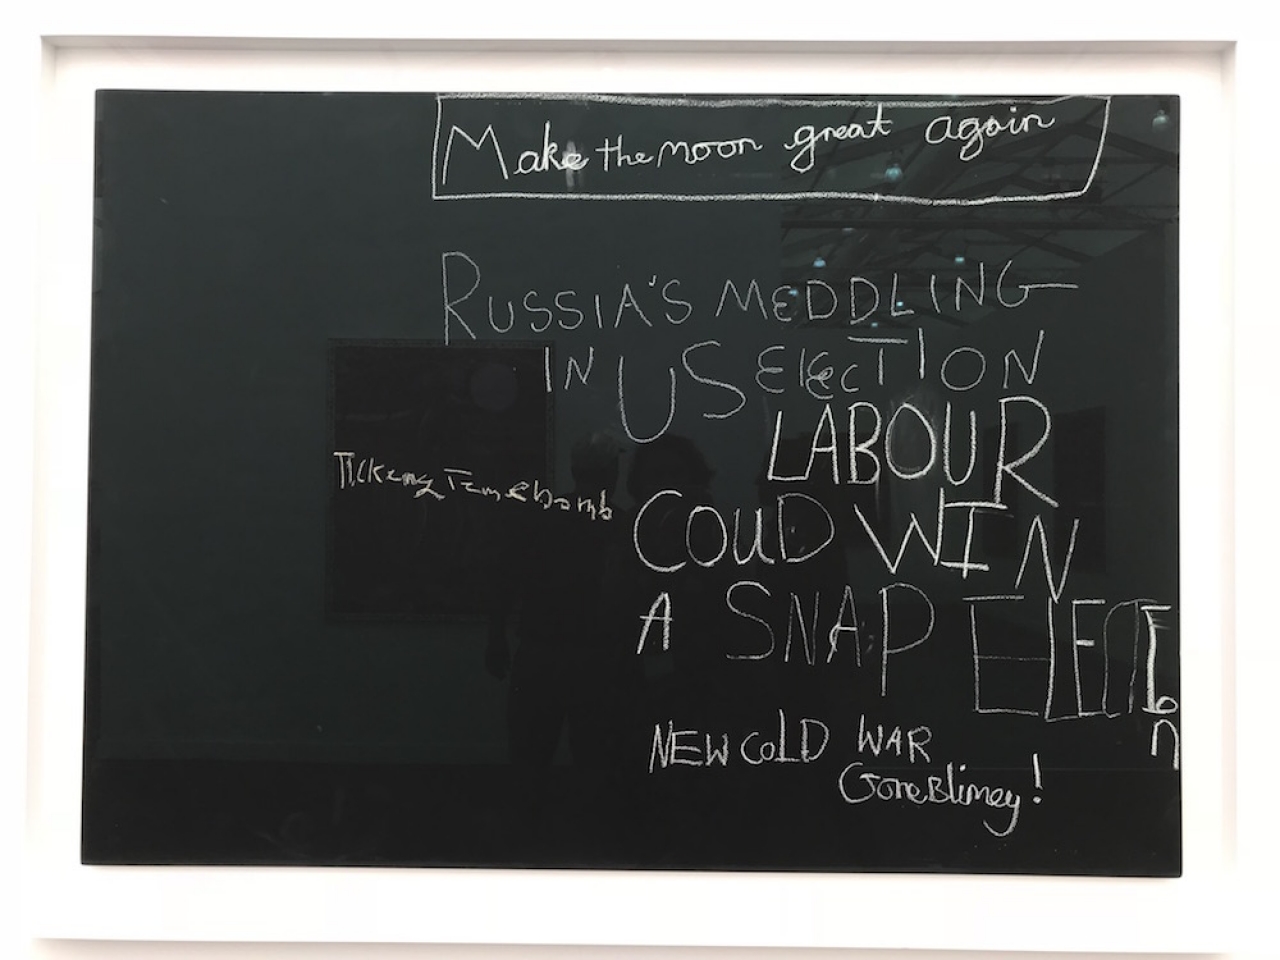 Make the moon great again
RUSSIA'S MEDDLING
IN US ElecTION
LABOUR
Ticking Timebomb
COUD WIN
A SNAP Election
NEW COLD WAR
GoreBlimey!